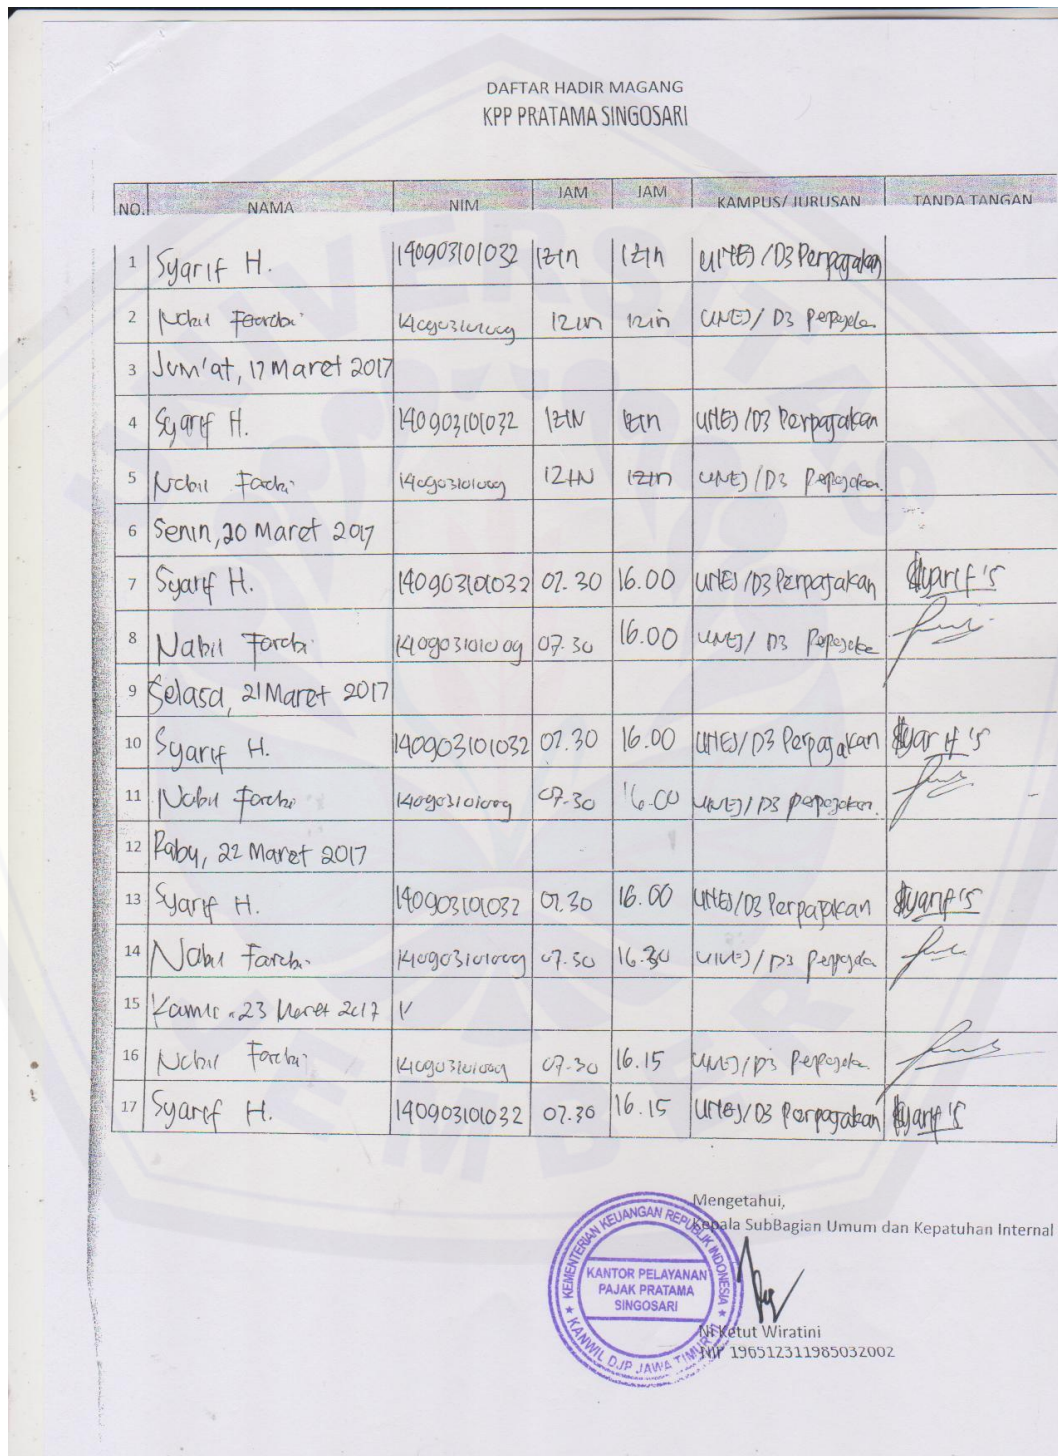 DAFTAR HADIR MAGANG
KPP PRATAMA SINGOSARI
NO. NAMA NIM JAM JAM KAMPUS/ JURUSAN TANDA TANGAN
1 Syarif H. 140903101032 IZIN IZIN UNEJ/D3 Perpajakan
2 Nabil Farabi 140903101009 IZIN IZIN UNEJ/ D3 Perpajakan
3 Jum'at, 17 Maret 2017
4 Syarif H. 140903101032 IZIN IZIN UNEJ/D3 Perpajakan
5 Nabil Farabi 140903101009 IZIN IZIN UNEJ/D3 Perpajakan.
6 Senin, 20 Maret 2017
7 Syarif H. 140903101032 07.30 16.00 UNEJ/D3 Perpajakan Syarif's
8 Nabil Farabi 140903101009 07.30 16.00 UNEJ/ D3 Perpajakan
9 Selasa, 21 Maret 2017
10 Syarif H. 140903101032 07.30 16.00 UNEJ/D3 Perpajakan Syarif's
11 Nabil Farabi 140903101009 07.30 16.00 UNEJ/D3 Perpajakan.
12 Rabu, 22 Maret 2017
13 Syarif H. 140903101032 07.30 16.00 UNEJ/D3 Perpajakan Syarif's
14 Nabil Farabi 140903101009 07.30 16.30 UNEJ/D3 Perpajakan
15 Kamis, 23 Maret 2017
16 Nabil Farabi 140903101009 07.30 16.15 UNEJ/D3 Perpajakan
17 Syarif H. 140903101032 07.30 16.15 UNEJ/D3 Perpajakan Syarif's
Mengetahui,
Kepala SubBagian Umum dan Kepatuhan Internal
KEMENTERIAN KEUANGAN REPUBLIK INDONESIA
KANTOR PELAYANAN
PAJAK PRATAMA
SINGOSARI
KANWIL DJP JAWA TIMUR
Ni Ketut Wiratini
NIP 196512311985032002
UNIVERSITAS
JEMBER